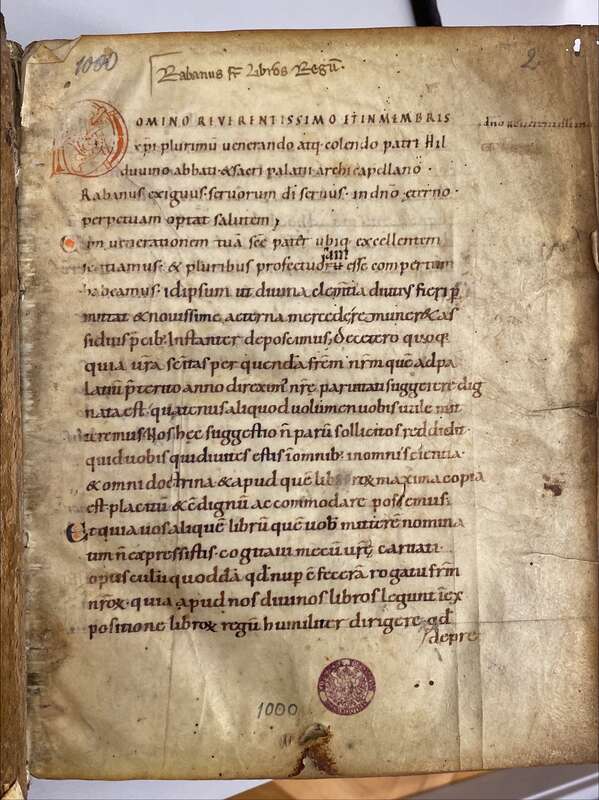 1000
Rabanus sr libros Regū.
2
DOMINO REVERENTISSIMO ET IN MEMBRIS
xp̄i plurimū uenerando atq; colendo patri Hil
duuino abbati & sacri palatii archicapellano
Rabanus exiguus seruorum dī seruus in dn̄o ęterno
perpetuam optat salutem;
Cum uenerationem tuā sc̄e pater ubiq; excellentem
sentiamus & pluribus profectuorū esse compertum
habeamus idipsum ut diuina clem̄tia diutius fieri p̄
mittat & nouissime aeterna mercede remuner& as
siduis p̄cib; Instanter deposcimus, de cetero quoq;
quia ur̄a sc̄itas per quendā fr̄em nr̄m quē ad pa
latiū p̄terito anno direximꝰ nr̄ę paruitati suggerere dig
nata est quatenus aliquod uolumen uobis utile mit
teremus. Nos hęc suggestio n̄ parū sollicitos reddidit
quid uobis qui diuites estis in omnib; in omni scientia
& omni doctrina & apud quē librorꝝ maxima copia
est placitū & c̄dignū accommodare possemus;
Et quia uos aliquē librū quē uob̄ mitterē nomina
tim n̄ expressistis cogitaui mecū ur̄ę caritati
opusculū quoddā qd̄ nup̄ c̄fecerā rogatu fr̄m
nr̄orꝝ quia apud nos diuinos libros legunt in ex
positione librorꝝ regū humiliter dirigere qd̄
depre
1000